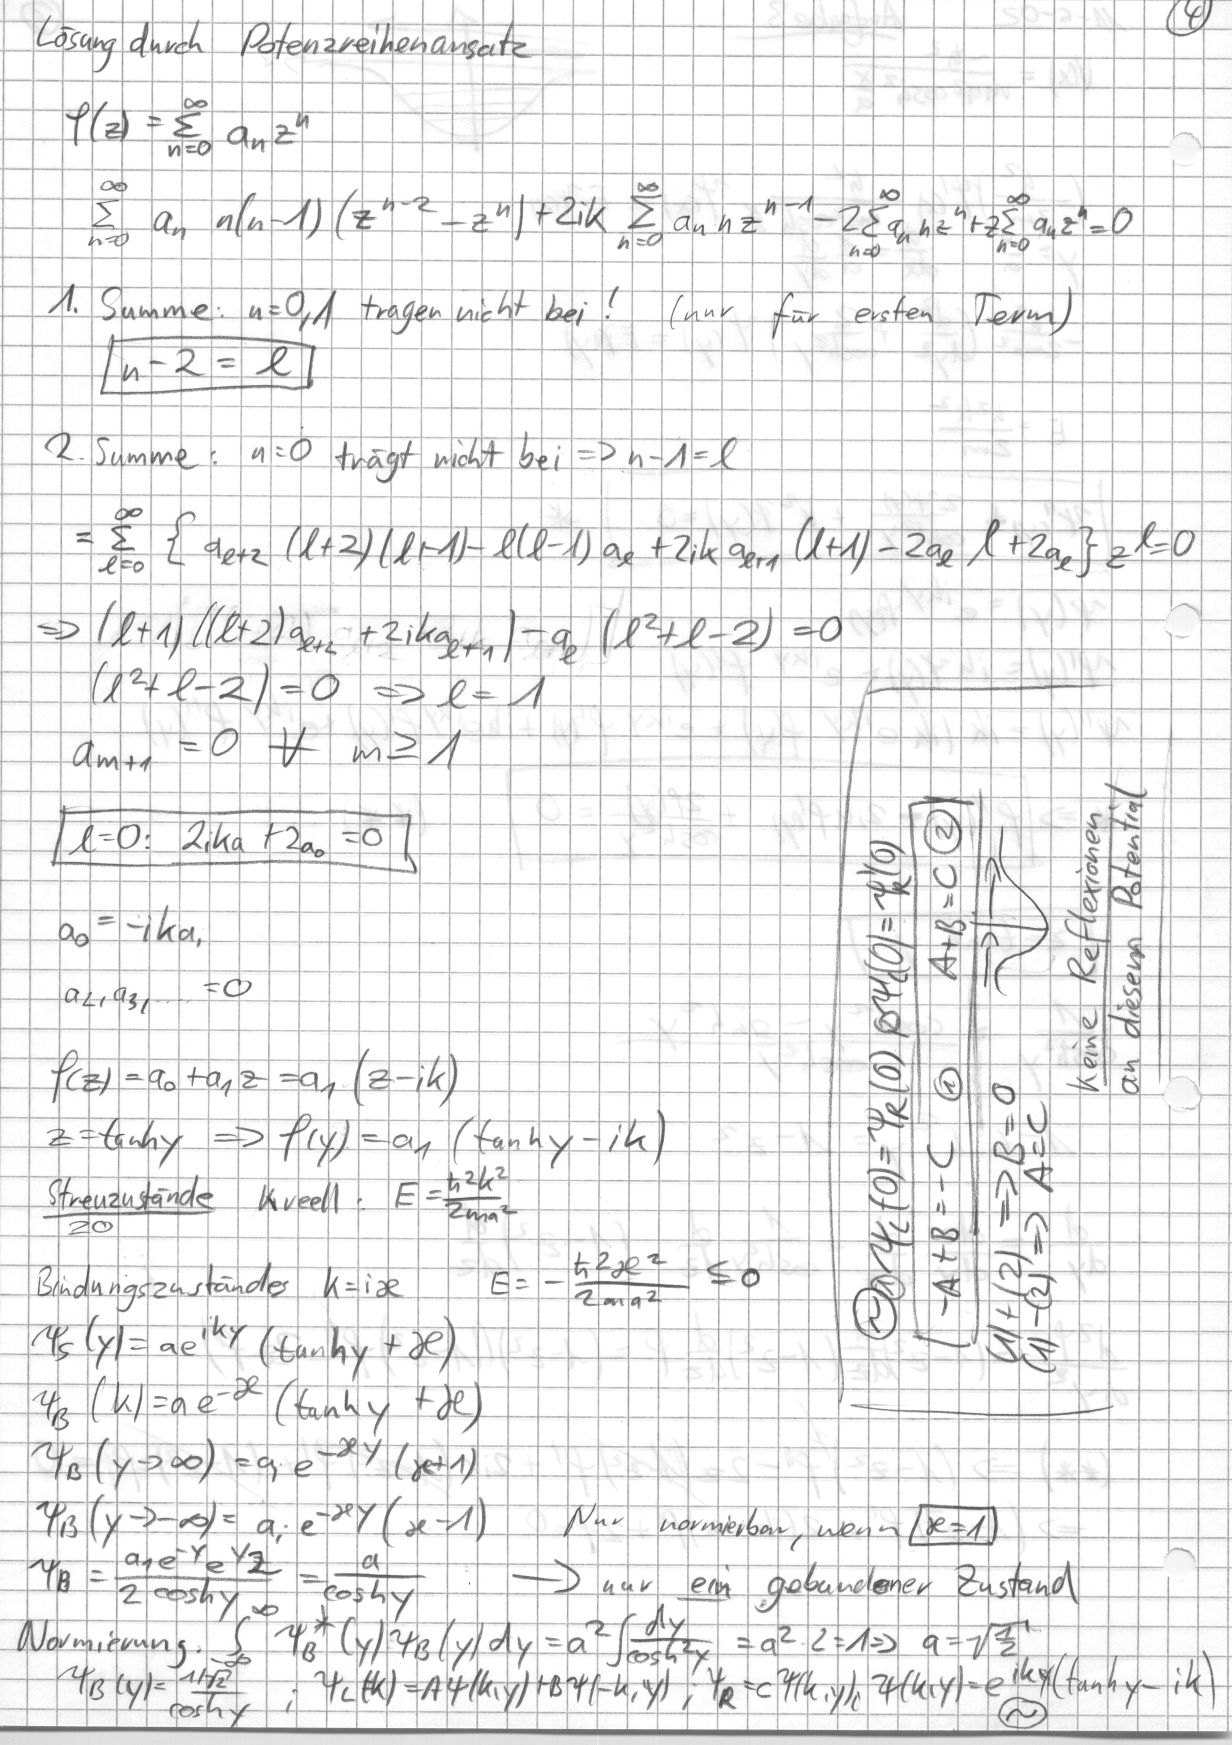 4
Lösung durch Potenzreihenansatz
f(z) = Σ_{n=0}^∞ a_n z^n
Σ_{n=0}^∞ a_n n(n-1) (z^{n-2} - z^n) + 2ik Σ_{n=0}^∞ a_n n z^{n-1} - 2 Σ_{n=0}^∞ a_n n z^n + 2 Σ_{n=0}^∞ a_n z^n = 0
1. Summe: n=0,1 tragen nicht bei! (nur für ersten Term)
n-2 = l
2. Summe: n=0 trägt nicht bei => n-1=l
= Σ_{l=0}^∞ { a_{l+2} (l+2)(l+1) - l(l-1) a_l + 2ik a_{l+1} (l+1) - 2a_l l + 2a_l } z^l = 0
=> (l+1) ((l+2) a_{l+2} + 2ik a_{l+1}) - a_l (l²+l-2) = 0
(l²+l-2) = 0 => l = 1
a_{m+1} = 0 ∀ m ≥ 1
l=0: 2ika + 2a_0 = 0
a_0 = -ika_1
a_2, a_3, ... = 0
f(z) = a_0 + a_1 z = a_1 (z-ik)
z = tanhy => f(y) = a_1 (tanhy - ik)
Streuzustände k reell: E = ħ²k²/2ma²
≥0
Bindungszustände k = iæ E = - ħ²æ²/2ma² ≤ 0
ψ_S (y) = ae^{iky} (tanhy + æ)
ψ_B (k) = a e^{-æ} (tanhy + æ)
ψ_B (y→∞) = a_1 e^{-æy} (æ+1)
ψ_B (y→-∞) = a_1 e^{-æy} (æ-1) Nur normierbar, wenn æ=1
ψ_B = a_1 e^{-y} e^y 2 / 2 coshy = a / coshy → nur ein gebundener Zustand
Normierung: ∫_{-∞}^∞ ψ_B^* (y) ψ_B (y) dy = a² ∫ dy/cosh²y = a² · 2 = 1 => a = √(1/2)
ψ_B (y) = 1/√2 / coshy ; ψ_L (k) = A ψ(k,y) + B ψ(-k,y) ; ψ_R = C ψ(k,y), ψ(k,y) = e^{iky} (tanhy - ik)
~
~ ψ_L(0) = ψ_R(0) ψ_L'(0) = ψ_R'(0)
-A+B = -C (1) A+B = C (2)
(1)+(2) => B=0
(1)-(2) => A=C
Keine Reflexionen
an diesem Potential